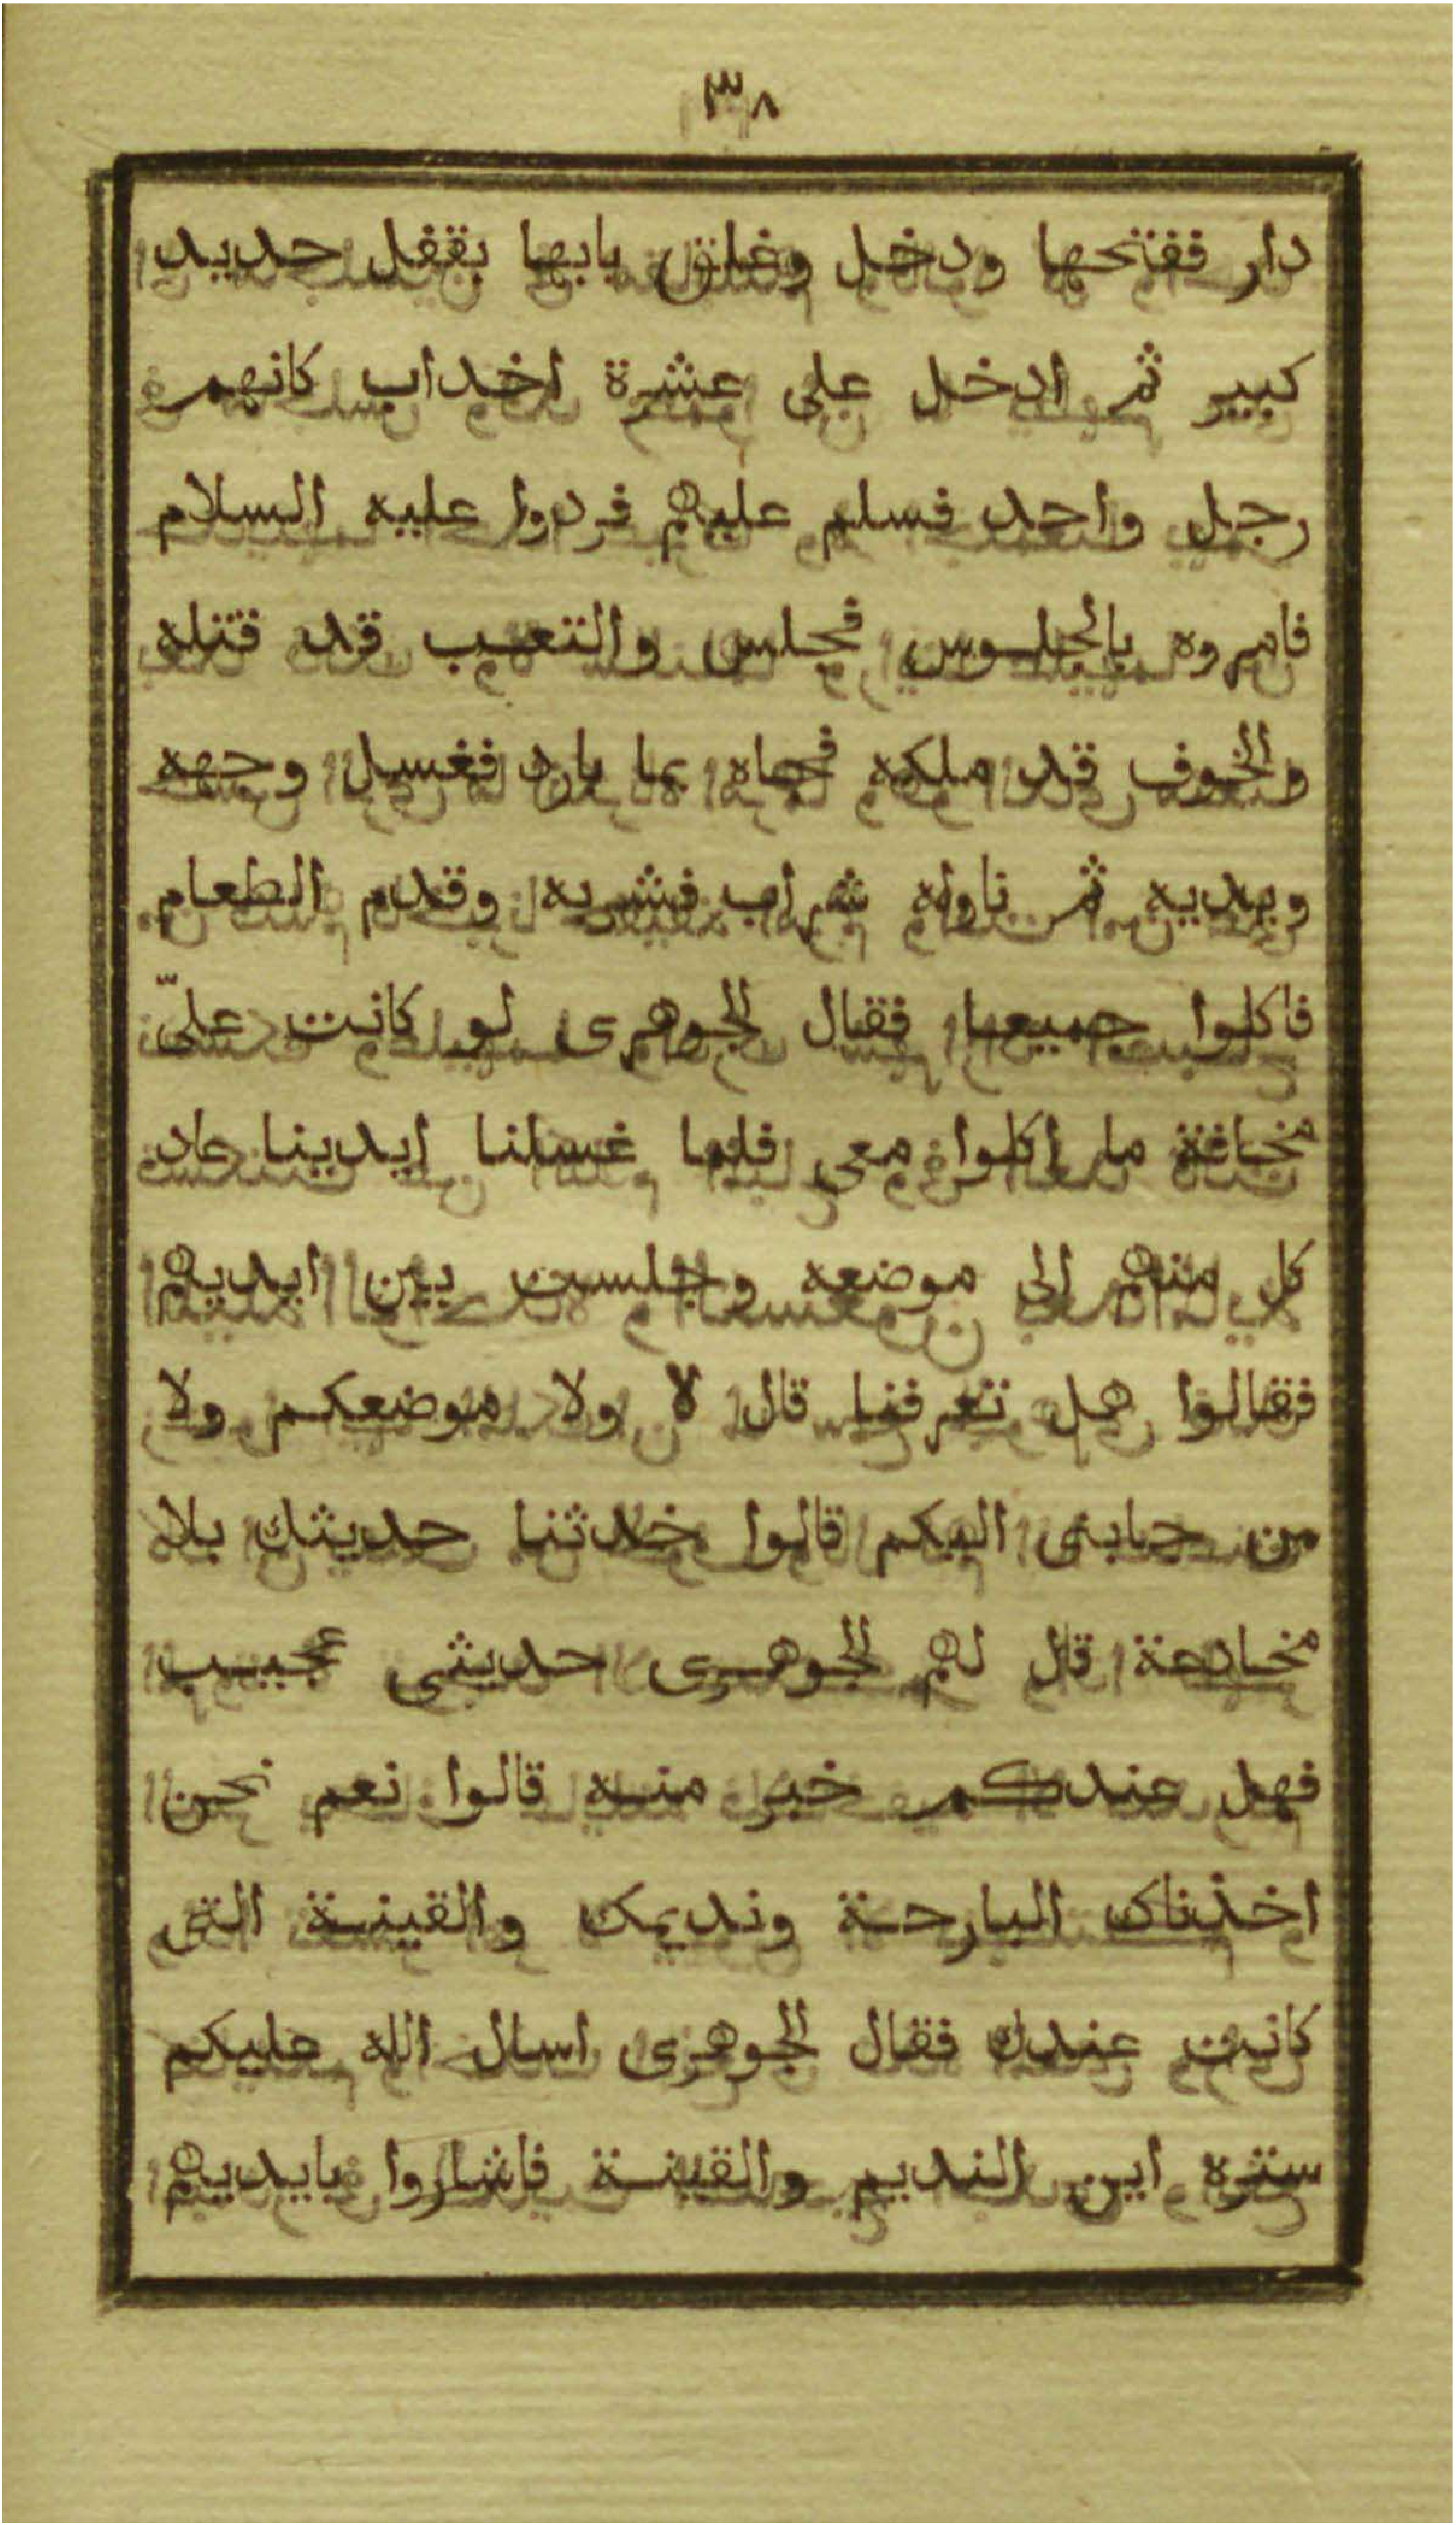 ٣٨
دار ففتحها ودخل وغلق بابها بقفل حديد
كبير ثم ادخل على عشرة اخداب كانهم
رجل واحد فسلم عليهم فردوا عليه السلام
فامروه بالجلوس فجلس والتعب قد قتله
والخوف قد ملكه فجاه بما بارد فغسل وجهه
ويديه ثم ناوله شراب فشربه وقدم الطعام
فاكلوا جميعا فقال الجوهرى لو كانت علىّ
مخافة ما اكلوا معى فلما غسلنا ايدينا عاد
كل منهم الى موضعه وجلست بين ايديهم
فقالوا هل تعرفنا قال لا ولا موضعكم ولا
من جابنى اليكم قالوا حدثنا حديثك بلا
مخادعة قال لهم الجوهرى حديثى عجيب
فهل عندكم خبر منه قالوا نعم نحن
اخذناك البارحة ونديمك والقينة التى
كانت عندك فقال الجوهرى اسال الله عليكم
ستره اين النديم والقينة فاشاروا بايديهم